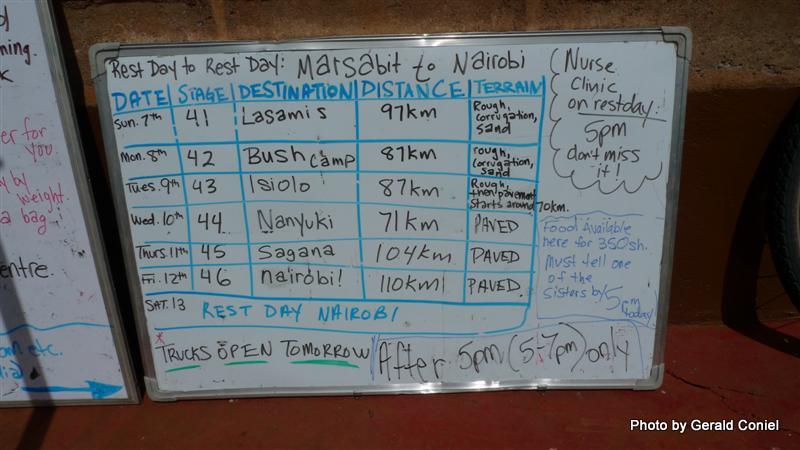 Rest Day to Rest Day: Marsabit to Nairobi
DATE STAGE DESTINATION DISTANCE TERRAIN
Sun. 7th 41 Lasamis 97km Rough, corrugation, sand
Mon. 8th 42 Bush Camp 87km rough, corrugation, sand
Tues. 9th 43 Isiolo 87km Rough, then pavement starts around 70km.
Wed. 10th 44 Nanyuki 71km PAVED
Thurs. 11th 45 Sagana 104km PAVED
Fri. 12th 46 nairobi! 110km! PAVED
SAT. 13 REST DAY NAIROBI
* TRUCKS OPEN TOMORROW After 5pm (5-7pm) only
Nurse
Clinic
on restday.
5pm
don't miss
it!
Food Available
here for 350sh.
Must tell one
of the
Sisters by 5pm today!
ning.
er for
you
by
weight.
a bag
entre.
etc.
Photo by Gerald Coniel